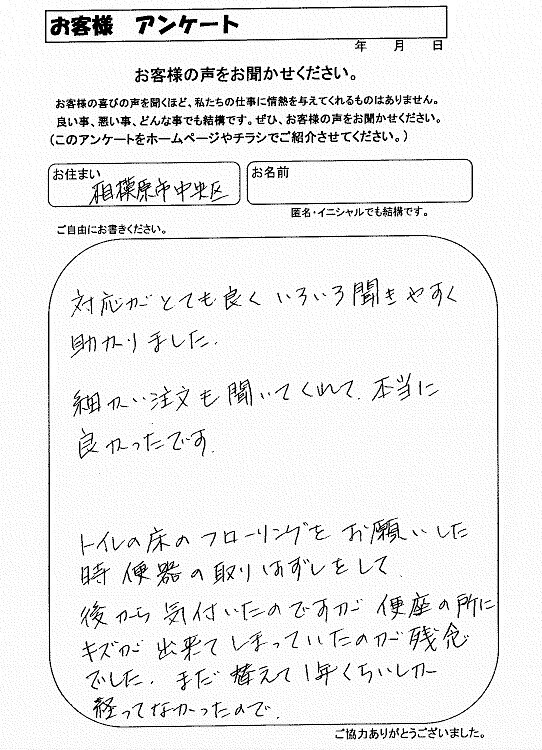 お客様 アンケート
年 月 日
お客様の声をお聞かせください。
お客様の喜びの声を聞くほど、私たちの仕事に情熱を与えてくれるものはありません。
良い事、悪い事、どんな事でも結構です。ぜひ、お客様の声をお聞かせください。
(このアンケートをホームページやチラシでご紹介させてください。)
お住まい
相模原市中央区
お名前
匿名・イニシャルでも結構です。
ご自由にお書きください。
対応がとても良く いろいろ聞きやすく
助かりました.
細かい注文も聞いてくれて、本当に
良かったです.
トイレの床のフローリングをお願いした
時便器の取りはずしをして、
後から気付いたのですが便座の所に
キズが出来てしまっていたのが残念
でした. まだ替えて1年くらいしか
経ってなかったので.
ご協力ありがとうございました。